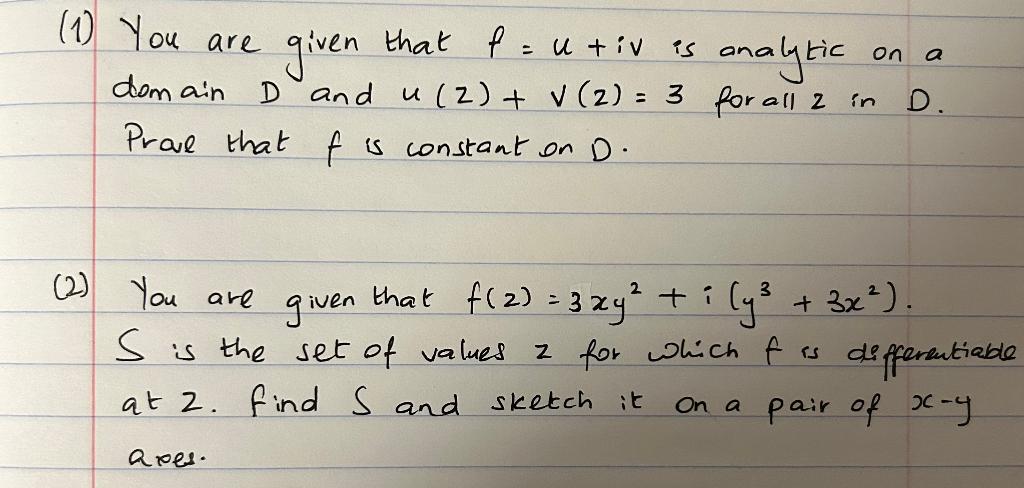 (1) You are given that f = u + iv is analytic on a
domain D and u(z) + v(z) = 3 for all z in D.
Prove that f is constant on D.
(2) You are given that f(z) = 3xy² + i(y³ + 3x²).
S is the set of values z for which f is differentiable
at z. find S and sketch it on a pair of x-y
axes.